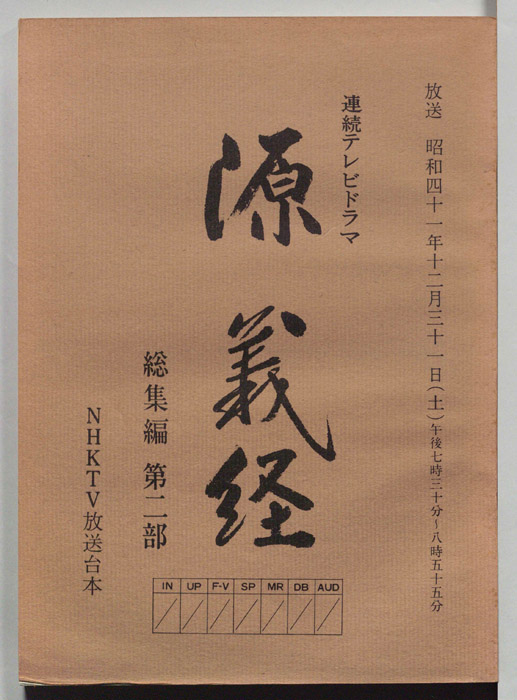 放送 昭和四十一年十二月三十一日(土)午後七時三十分~八時五十五分
連続テレビドラマ
源義経
総集編 第二部
NHKTV放送台本
IN UP F-V SP MR DB AUD